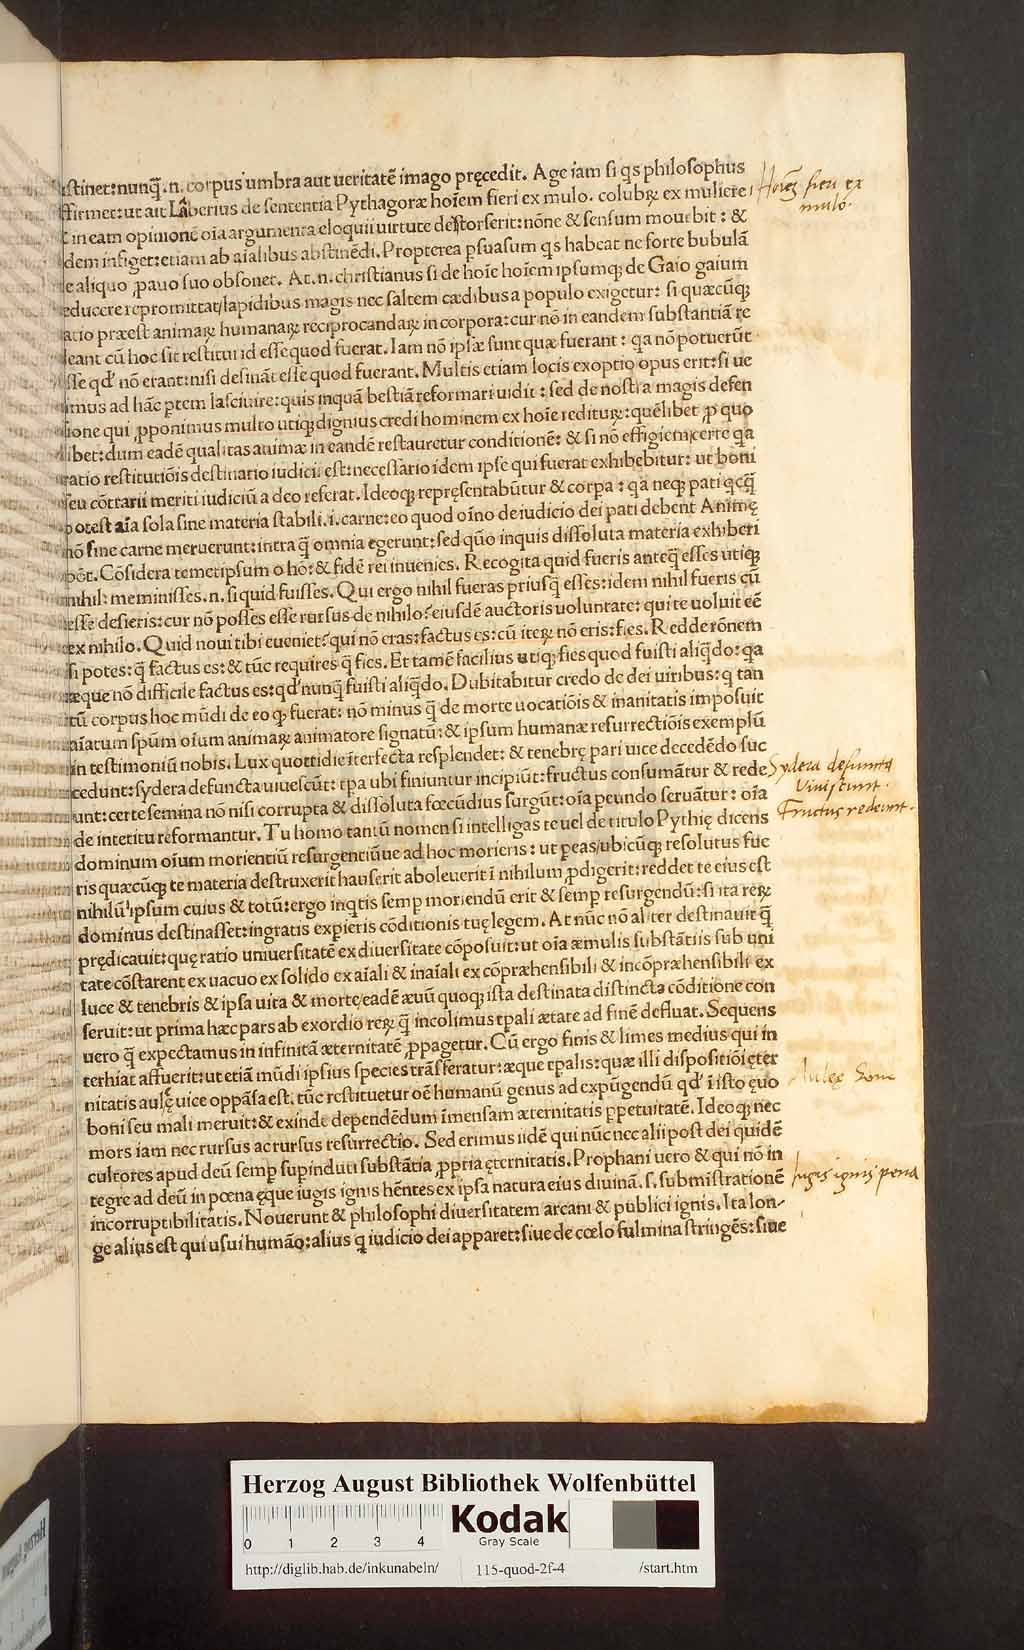 stinet: nunq̃. n. corpus umbra aut ueritatē imago pręcedit. Age iam si qs philosophus
ffirmet: ut ait Laberius de sententia Pythagoræ hoīem fieri ex mulo. colubrꝝ ex muliere:
t in eam opinionē oīa argumenta eloquii uirtute destorserit: nōne & sensum mouebit: &
dem infiget: etiam ab aīalibus abstinēdi. Propterea psuasum qs habeat ne forte bubulā
e aliquo ꝓauo suo obsonet. At. n. christianus si de hoīe hoīem ipsumqꝫ de Gaio gaium
educere repromittat/lapidibus magis nec saltem cædibus a populo exigetur: si quæcūqꝫ
atio præest animaꝝ humanaꝝ reciprocandaꝝ in corpora: cur nō in eandem substantiā re
eant cū hoc sit restitui id esse quod fuerat. Iam nō ipsæ sunt quæ fuerant: qa nō potuerūt
sse qd' nō erant: nisi desināt esse quod fuerant. Multis etiam locis exoptio opus erit: si ue
imus ad hāc ptem lasciuire: quis inquā bestiā reformari uidit: sed de nostra magis defen
sione qui ꝓponimus multo utiqꝫ dignius credi hominem ex hoīe redituꝝ: quēlibet ꝓ quo
libet: dum eadē qualitas animæ in eandē restauretur conditionē: & si nō effigiem: certe qa
ratio restitutiōis destinatio iudicii est: necessario idem ipse qui fuerat exhibebitur: ut boni
seu cōtrarii meriti iudiciū a deo referat. Ideoqꝫ repręsentabūtur & corpa: qa neqꝫ pati qcq̃
potest aīa sola sine materia stabili. i. carne: eo quod oīno de iudicio dei pati debent Animę
nō sine carne meruerunt: intra q̃ omnia egerunt: sed quō inquis dissoluta materia exhiberi
pōt. Cōsidera temetipsum o hō: & fidē rei inuenies. Recogita quid fueris anteq̃ esses utiqꝫ
nihil: meminisses. n. si quid fuisses. Qui ergo nihil fueras priusq̃ esses: idem nihil fueris cū
esse desieris: cur nō posses esse rursus de nihilo? eiusdē auctoris uoluntate: qui te uoluit eē
ex nihilo. Quid noui tibi eueniet? qui nō eras: factus es: cū iteꝝ nō eris: fies. Redde rōnem
si potes: q̃ factus es: & tūc requires q̃ fies. Et tamē facilius utiqꝫ fies quod fuisti aliq̃do: qa
æque nō difficile factus es: qd' nunq̃ fuisti aliq̃do. Dubitabitur credo de dei uiribus: q tan
tū corpus hoc mūdi de eo qꝫ fuerat: nō minus q̃ de morte uocatiōis & inanitatis imposuit
aīatum spūm oīum animaꝝ animatore signatū: & ipsum humanæ resurrectiōis exemplū
in testimoniū nobis. Lux quottidie īterfecta resplendet: & tenebrę pari uice decedēdo suc
cedunt: sydera defuncta uiuescūt: tpa ubi finiuntur incipiūt: fructus consumātur & rede
unt: certe semina nō nisi corrupta & dissoluta fœcūdius surgūt: oīa peundo seruātur: oīa
de intetitu reformantur. Tu homo tantū nomen si intelligas te uel de titulo Pythię dicens
dominum oīum morientiū resurgentiūue ad hoc moriens: ut peas/ubicūqꝫ resolutus fue
ris quæcūqꝫ te materia destruxerit hauserit aboleuerit ī nihilum ꝓdigerit: reddet te eius est
nihilū ipsum cuius & totū: ergo inqtis semp moriendū erit & semp resurgendū: si ita reꝝ
dominus destinasset: ingratis expieris cōditionis tuę legem. At nūc nō aliter destinauit q̃
prędicauit: quę ratio uniuersitatē ex diuersitate cōposuit: ut oīa æmulis substātiis sub uni
tate cōstarent ex uacuo ex solido ex aīali & inaīali ex cōpræhensibili & incōpræhensibili ex
luce & tenebris & ipsa uita & morte/eadē æuū quoqꝫ ista destinata distincta cōditione con
seruit: ut prima hæc pars ab exordio reꝝ q̃ incolimus tpali ætate ad finē defluat. Sequens
uero q̃ expectamus in infinitā æternitatē ꝓpagetur. Cū ergo finis & limes medius qui in
terhiat affuerit: ut etiā mūdi ipsius species trāsferatur: æque tpalis: quæ illi dispositiōi ęter
nitatis aulęę uice oppāsa est. tūc restituetur oē humanū genus ad expūgendū qd' ī isto ęuo
boni seu mali meruit: & exinde dependēdum īmensam æternitatis ppetuitatē. Ideoqꝫ nec
mors iam nec rursus ac rursus resurrectio. Sed erimus iidē qui nūc nec alii post dei quidē
cultores apud deū semp supinduti substātia ꝓpria ęternitatis. Prophani uero & qui nō in
tegre ad deū in pœna ęque iugis ignis hētes ex ipsa natura eius diuinā. s. submistrationē
incorruptibilitatis. Nouerunt & philosophi diuersitatem arcani & publici ignis. Ita lon-
ge alius est qui usui humāo: alius q iudicio dei apparet: siue de cœlo fulmina stringēs: siue
Hoīeꝫ fieri ex
mulo.
Sydera defuncta
Viuiscunt.
Fructus redeunt.
Iugis ignis pena
Herzog August Bibliothek Wolfenbüttel
0 1 2 3 4
Kodak
Gray Scale
http://diglib.hab.de/inkunabeln/ 115-quod-2f-4 /start.htm